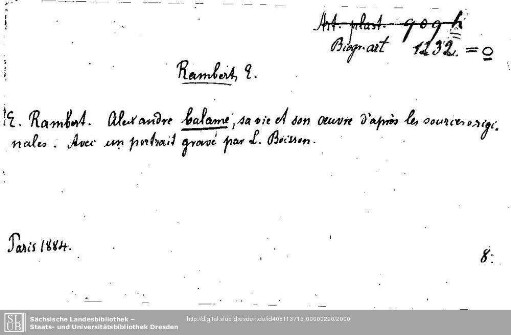 Art. plast. 909 h
Biogr. art 1232. = 0
Rambert, E.
E. Rambert. Alexandre Calame, sa vie et son œuvre d'après les sources origi-
nales. Avec un portrait gravé par L. Boisson.
Paris 1884.
8:
SLUB
Sächsische Landesbibliothek –
Staats- und Universitätsbibliothek Dresden